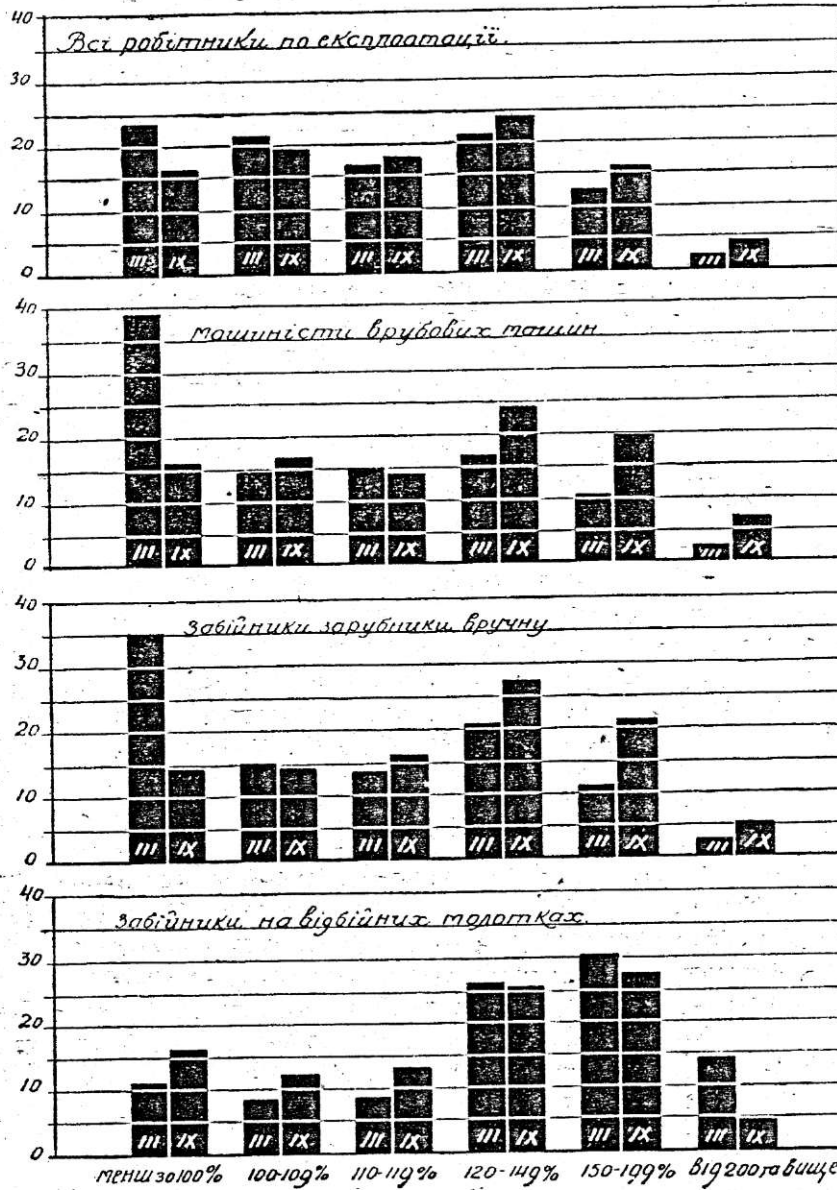 40
Всі робітники по експлоатації.
30
20
10
0
III IX III IX III IX III IX III IX III IX
40
Машиністи врубових машин
30
20
10
0
III IX III IX III IX III IX III IX III IX
40
Забійники зарубники вручну
30
20
10
0
III IX III IX III IX III IX III IX III IX
40
Забійники на відбійних молотках.
30
20
10
0
III IX III IX III IX III IX III IX III IX
менш за 100% 100-109% 110-119% 120-149% 150-199% від 200 та вище